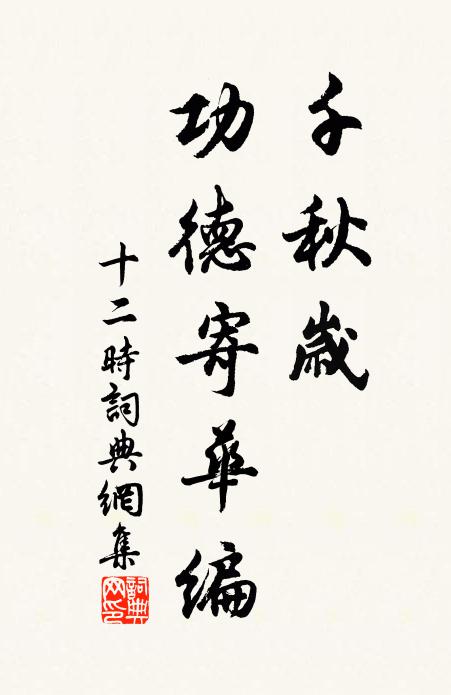 千秋歲
功德寄華編
十二時詞典網集
詞典
网印